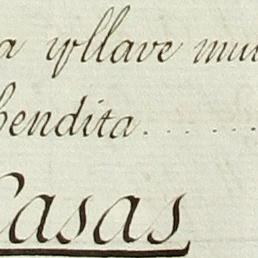 a y llave mu
bendita........
Casas